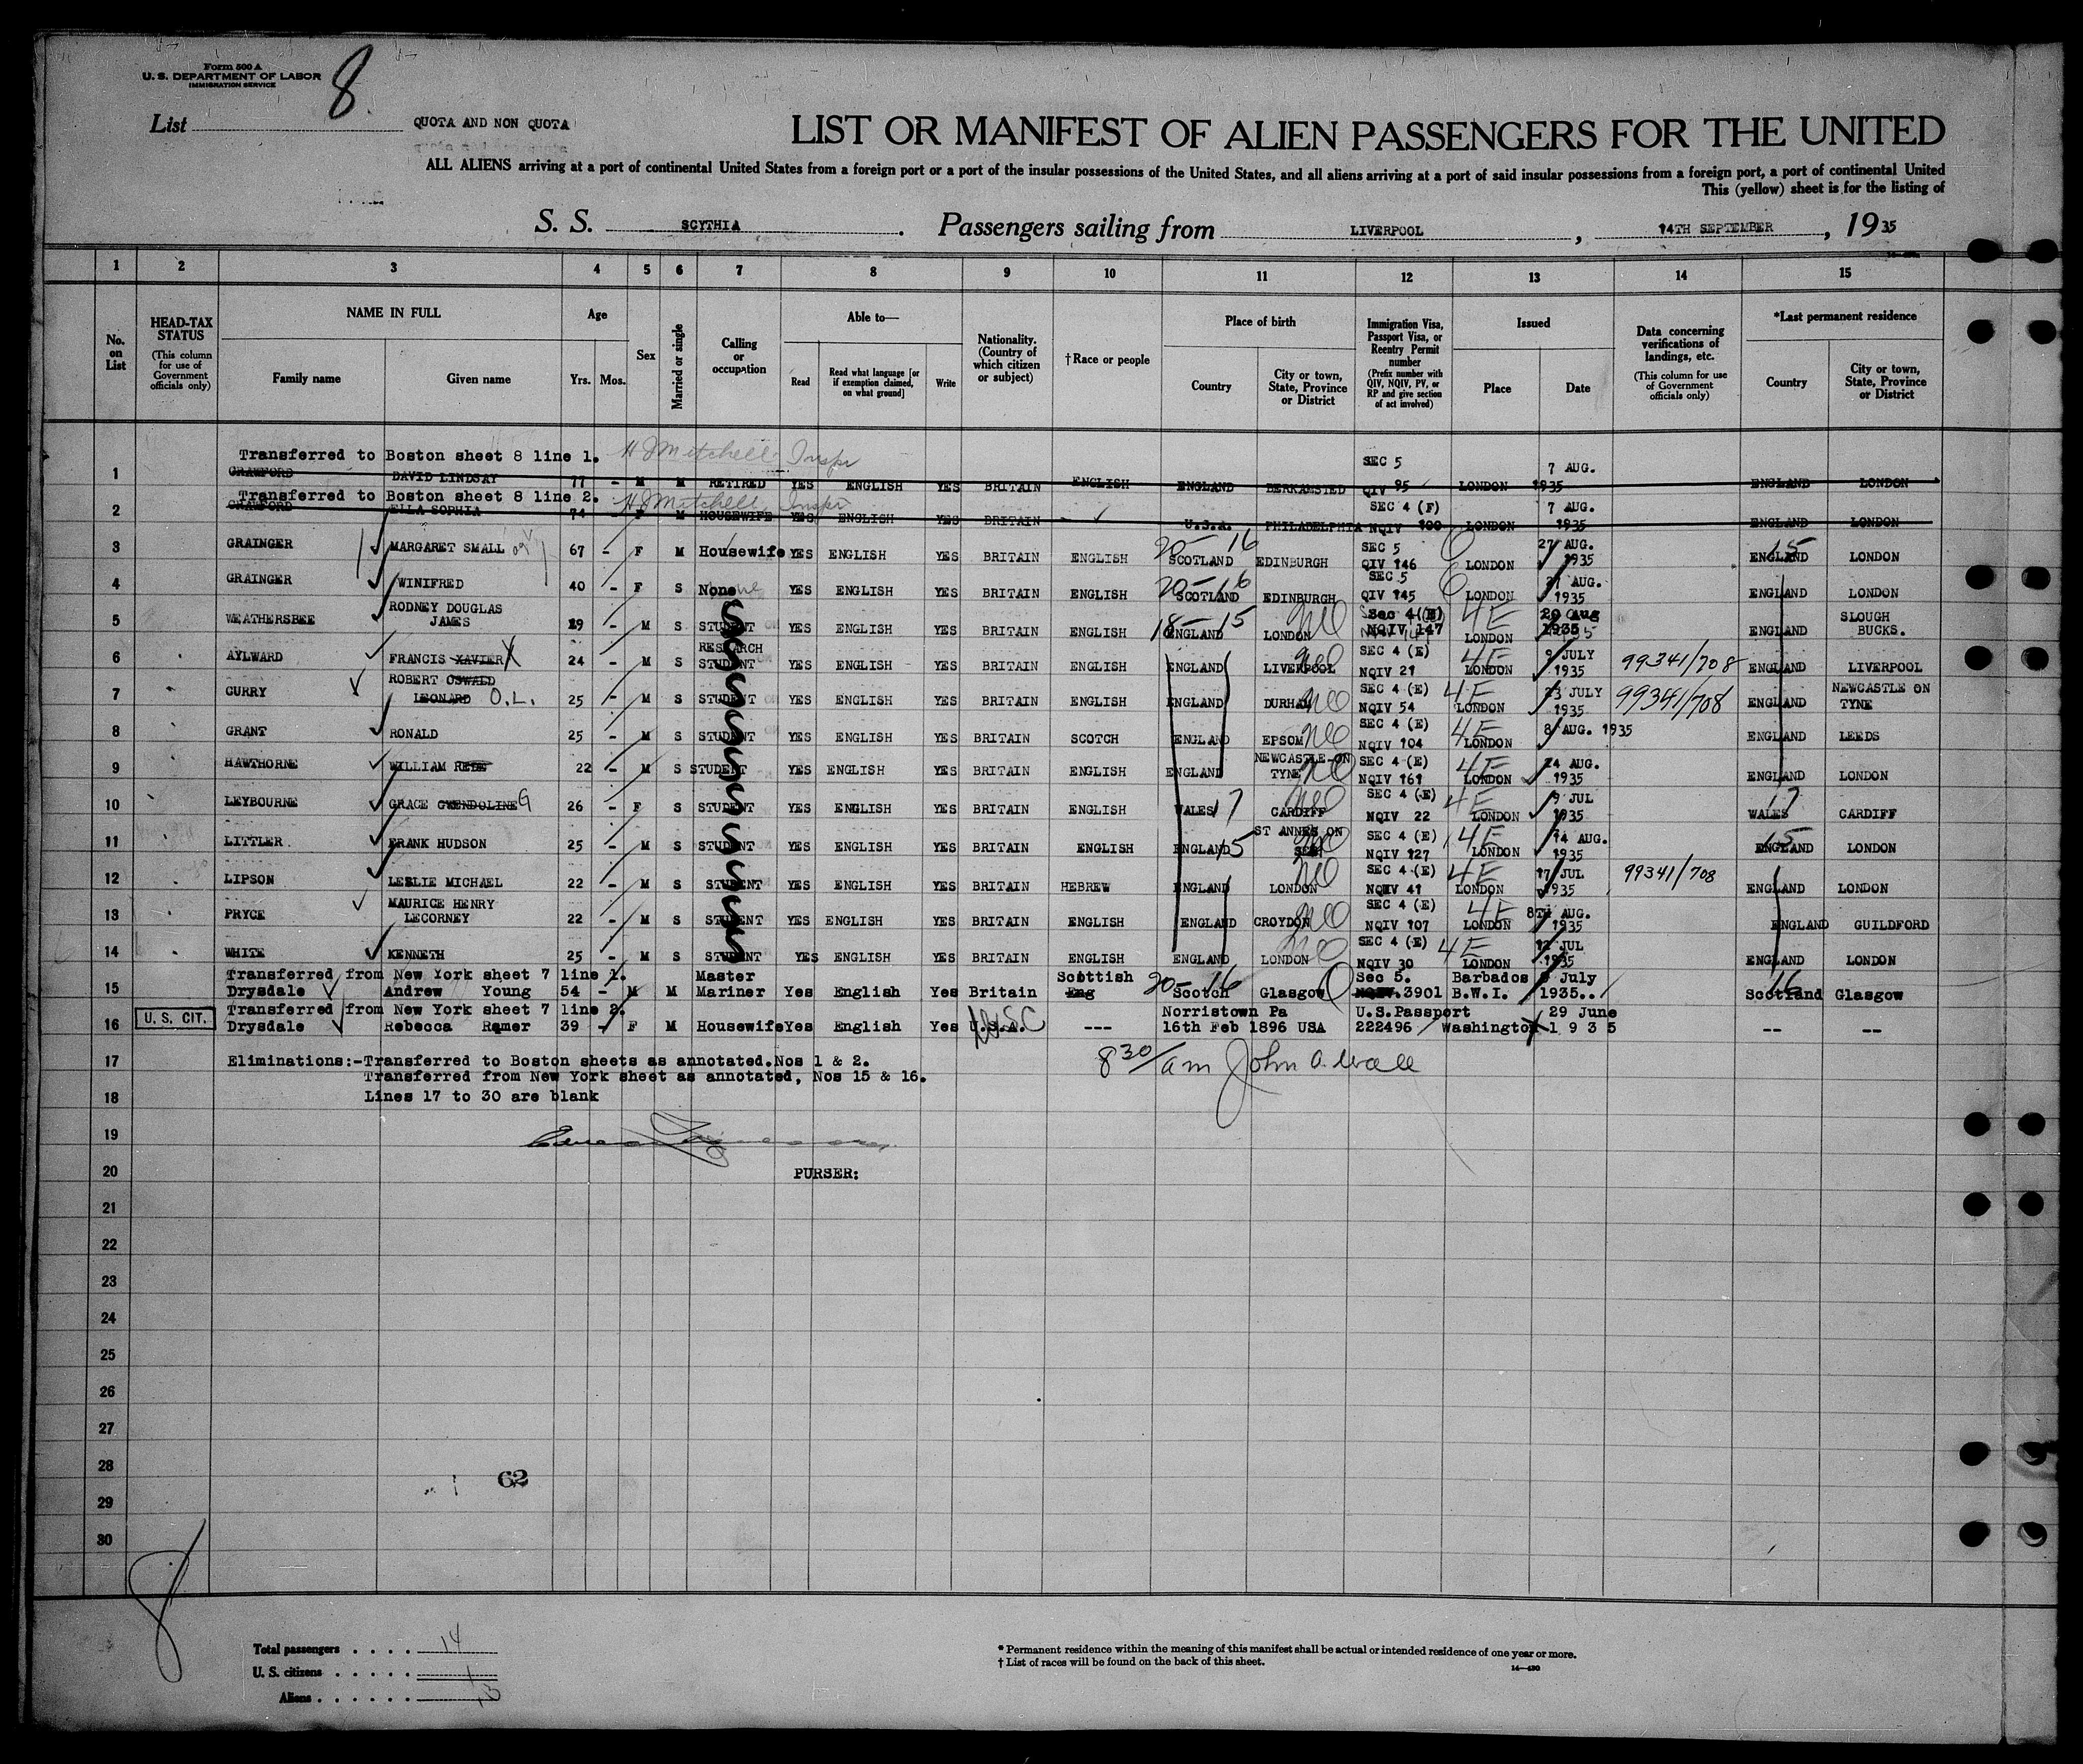 Form 500 A
U. S. DEPARTMENT OF LABOR
IMMIGRATION SERVICE
8
List QUOTA AND NON QUOTA
LIST OR MANIFEST OF ALIEN PASSENGERS FOR THE UNITED
ALL ALIENS arriving at a port of continental United States from a foreign port or a port of the insular possessions of the United States, and all aliens arriving at a port of said insular possessions from a foreign port, a port of continental United
This (yellow) sheet is for the listing of
S. S. SCYTHIA. Passengers sailing from LIVERPOOL, 14TH SEPTEMBER, 1935
1 2 3 4 5 6 7 8 9 10 11 12 13 14 15
No. on List
HEAD-TAX STATUS (This column for use of Government officials only)
NAME IN FULL Family name Given name
Age Yrs. Mos.
Sex
Married or single
Calling or occupation
Able to— Read Read what language [or if exemption claimed, on what ground] Write
Nationality. (Country of which citizen or subject)
†Race or people
Place of birth Country City or town, State, Province or District
Immigration Visa, Passport Visa, or Reentry Permit number (Prefix number with QIV, NQIV, PV, or RP and give section of act involved)
Issued Place Date
Data concerning verifications of landings, etc. (This column for use of Government officials only)
*Last permanent residence Country City or town, State, Province or District
Transferred to Boston sheet 8 line 1. H J Mitchell Inspr
1 CRAWFORD DAVID LINDSAY 77 - M M RETIRED YES ENGLISH YES BRITAIN ENGLISH ENGLAND BERKAMSTED SEC 5 QIV 95 LONDON 7 AUG. 1935 ENGLAND LONDON
Transferred to Boston sheet 8 line 2. H J Mitchell Inspr
2 CRAWFORD ELLA SOPHIA 74 - F M HOUSEWIFE YES ENGLISH YES BRITAIN - U.S.A. PHILADELPHIA SEC 4 (F) NQIV 100 LONDON 7 AUG. 1935 ENGLAND LONDON
3 GRAINGER MARGARET SMALL 67 - F M Housewife YES ENGLISH YES BRITAIN ENGLISH 20-16 SCOTLAND EDINBURGH SEC 5 QIV 146 LONDON 27 AUG. 1935 15 ENGLAND LONDON
4 GRAINGER WINIFRED 40 - F S None YES ENGLISH YES BRITAIN ENGLISH 20-16 SCOTLAND EDINBURGH SEC 5 QIV 145 LONDON 27 AUG. 1935 ENGLAND LONDON
5 WEATHERSBEE RODNEY DOUGLAS JAMES 19 - M S STUDENT YES ENGLISH YES BRITAIN ENGLISH 18-15 ENGLAND LONDON Sec 4 (E) NQIV 147 4E LONDON 20 Aug 1935 ENGLAND SLOUGH BUCKS.
6 AYLWARD FRANCIS XAVIER X 24 - M S RESEARCH STUDENT YES ENGLISH YES BRITAIN ENGLISH ENGLAND LIVERPOOL SEC 4 (E) NQIV 21 4E LONDON 9 JULY 1935 99341/708 ENGLAND LIVERPOOL
7 CURRY ROBERT OSWALD LEONARD O.L. 25 - M S STUDENT YES ENGLISH YES BRITAIN ENGLISH ENGLAND DURHAM SEC 4 (E) NQIV 54 4E LONDON 23 JULY 1935 99341/708 ENGLAND NEWCASTLE ON TYNE
8 GRANT RONALD 25 - M S STUDENT YES ENGLISH YES BRITAIN SCOTCH ENGLAND EPSOM SEC 4 (E) NQIV 104 4E LONDON 8 AUG. 1935 ENGLAND LEEDS
9 HAWTHORNE WILLIAM 22 - M S STUDENT YES ENGLISH YES BRITAIN ENGLISH ENGLAND NEWCASTLE ON TYNE SEC 4 (E) NQIV 161 4E LONDON 24 AUG. 1935 ENGLAND LONDON
10 LEYBOURNE GRACE GWENDOLINE G 26 - F S STUDENT YES ENGLISH YES BRITAIN ENGLISH WALES 17 CARDIFF SEC 4 (E) NQIV 22 4E LONDON 9 JUL 1935 17 WALES CARDIFF
11 LITTLER FRANK HUDSON 25 - M S STUDENT YES ENGLISH YES BRITAIN ENGLISH ENGLAND 15 ST ANNES ON SEA SEC 4 (E) NQIV 127 4E LONDON 14 AUG. 1935 15 ENGLAND LONDON
12 LIPSON LESLIE MICHAEL 22 - M S STUDENT YES ENGLISH YES BRITAIN HEBREW ENGLAND LONDON SEC 4 (E) NQIV 41 4E LONDON 17 JUL 1935 99341/708 ENGLAND LONDON
13 PRYCE MAURICE HENRY LECORNEY 22 - M S STUDENT YES ENGLISH YES BRITAIN ENGLISH ENGLAND CROYDON SEC 4 (E) NQIV 107 4E LONDON 8TH AUG. 1935 ENGLAND GUILDFORD
14 WHITE KENNETH 25 - M S STUDENT YES ENGLISH YES BRITAIN ENGLISH ENGLAND LONDON SEC 4 (E) NQIV 30 4E LONDON 12 JUL 1935 ENGLAND LONDON
Transferred from New York sheet 7 line 1.
15 Drysdale Andrew Young 54 - M M Master Mariner Yes English Yes Britain Scottish Eng 20-16 Scotch Glasgow Sec 5. NQIV. 3901 Barbados B.W.I. July 1935.. 16 Scotland Glasgow
Transferred from New York sheet 7 line 2.
16 U. S. CIT. Drysdale Rebecca Ramer 39 - F M Housewife Yes English Yes U.S.A. USC --- Norristown Pa 16th Feb 1896 USA U.S.Passport 222496 Washington 29 June 1935 -- --
17 Eliminations:-Transferred to Boston sheets as annotated.Nos 1 & 2. 8 30/am John A. Wall
Transferred from New York sheet as annotated, Nos 15 & 16.
18 Lines 17 to 30 are blank
19
20 PURSER:
21
22
23
24
25
26
27
28 62
29
30
8
Total passengers . . . . 14
U. S. citizens . . . . . 1
Aliens . . . . . . 13
* Permanent residence within the meaning of this manifest shall be actual or intended residence of one year or more.
† List of races will be found on the back of this sheet.
14—430